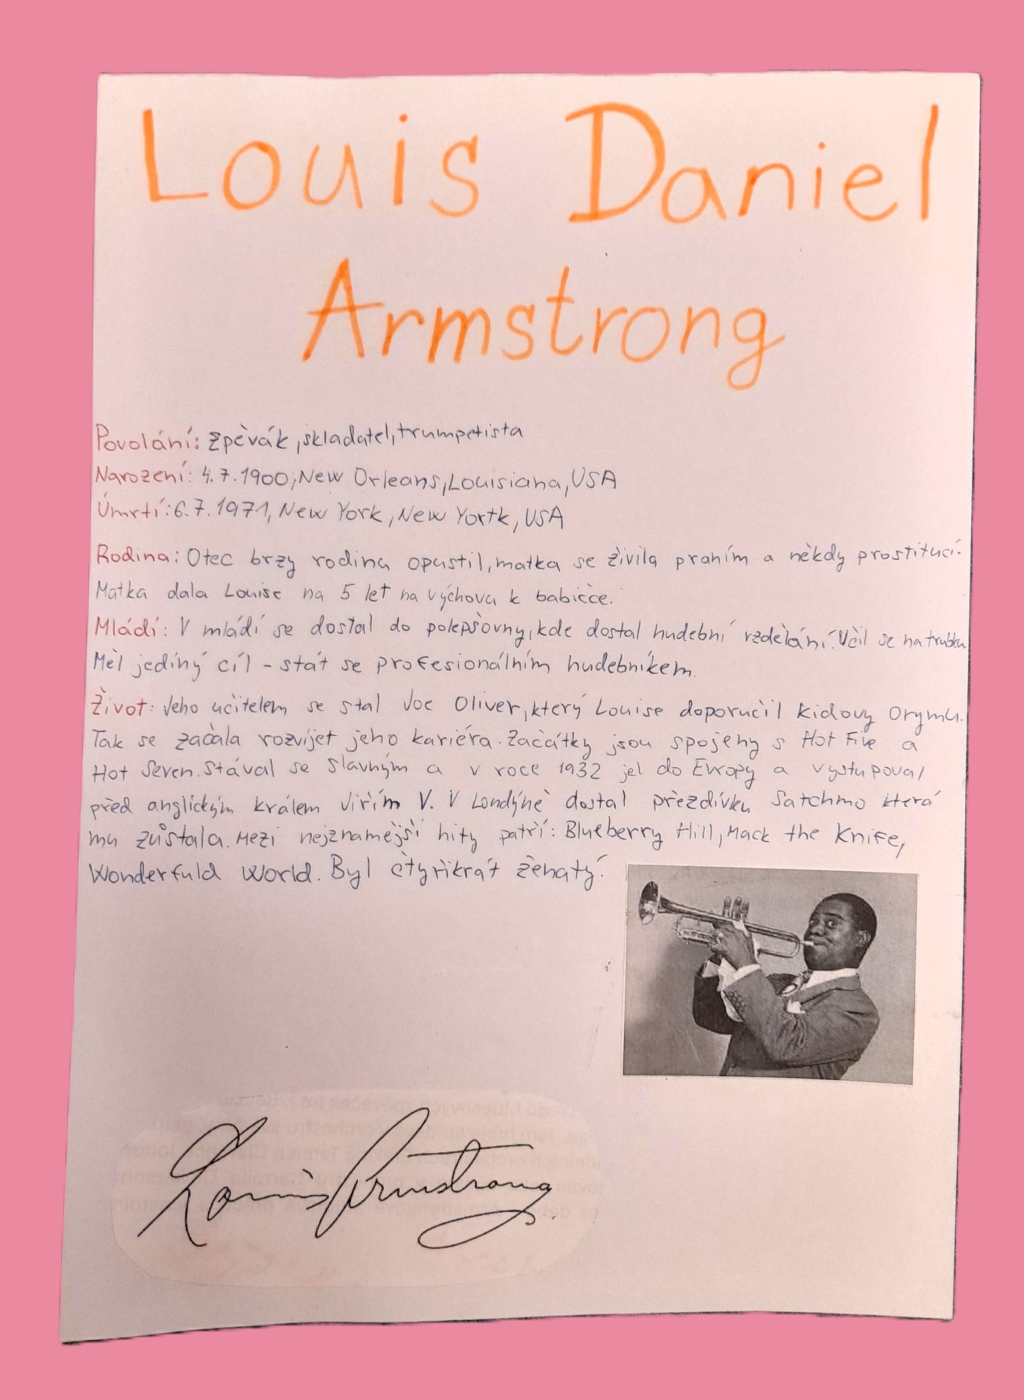 Louis Daniel
Armstrong
Povolání: Zpěvák, skladatel, trumpetista
Narození: 4.7.1900, New Orleans, Louisiana, USA
Úmrtí: 6.7.1971, New York, New Yortk, USA
Rodina: Otec brzy rodinu opustil, matka se živila praním a někdy prostitucí.
Matka dala Louise na 5 let na výchovu k babičce.
Mládí: V mládí se dostal do polepšovny, kde dostal hudební vzdělání. Učil se na trubku
Měl jediný cíl - stát se profesionálním hudebníkem.
Život: Jeho učitelem se stal Joe Oliver, který Louise doporučil Kidovy Orymu.
Tak se začala rozvíjet jeho kariéra. Začátky jsou spojeny s Hot Five a
Hot Seven. Stával se slavným a v roce 1932 jel do Evropy a vystupoval
před anglickým králem Jiřím V. V Londýně dostal přezdívku Satchmo která
mu zůstala. Mezi nejznamější hity patří: Blueberry Hill, Mack the Knife,
Wonderfuld World. Byl čtyřikrát ženatý.
Louis Armstrong